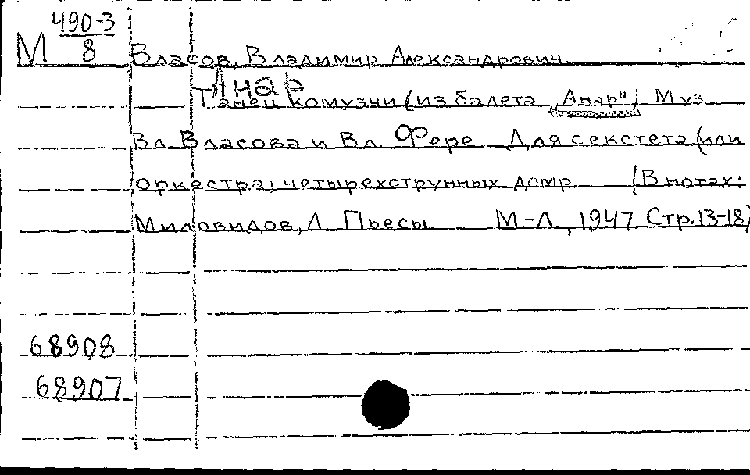 М 490-3
8
Власов, Владимир Александрович
Анар
Танец комузчи (из балета „Анар"). Муз.
Вл. Власова и Вл. Фере. Для секстета (или
оркестра) четырехструнных домр. (В нотах:
Миловидов, Л. Пьесы. М-Л, 1947. Стр. 13-18)
68908
68907